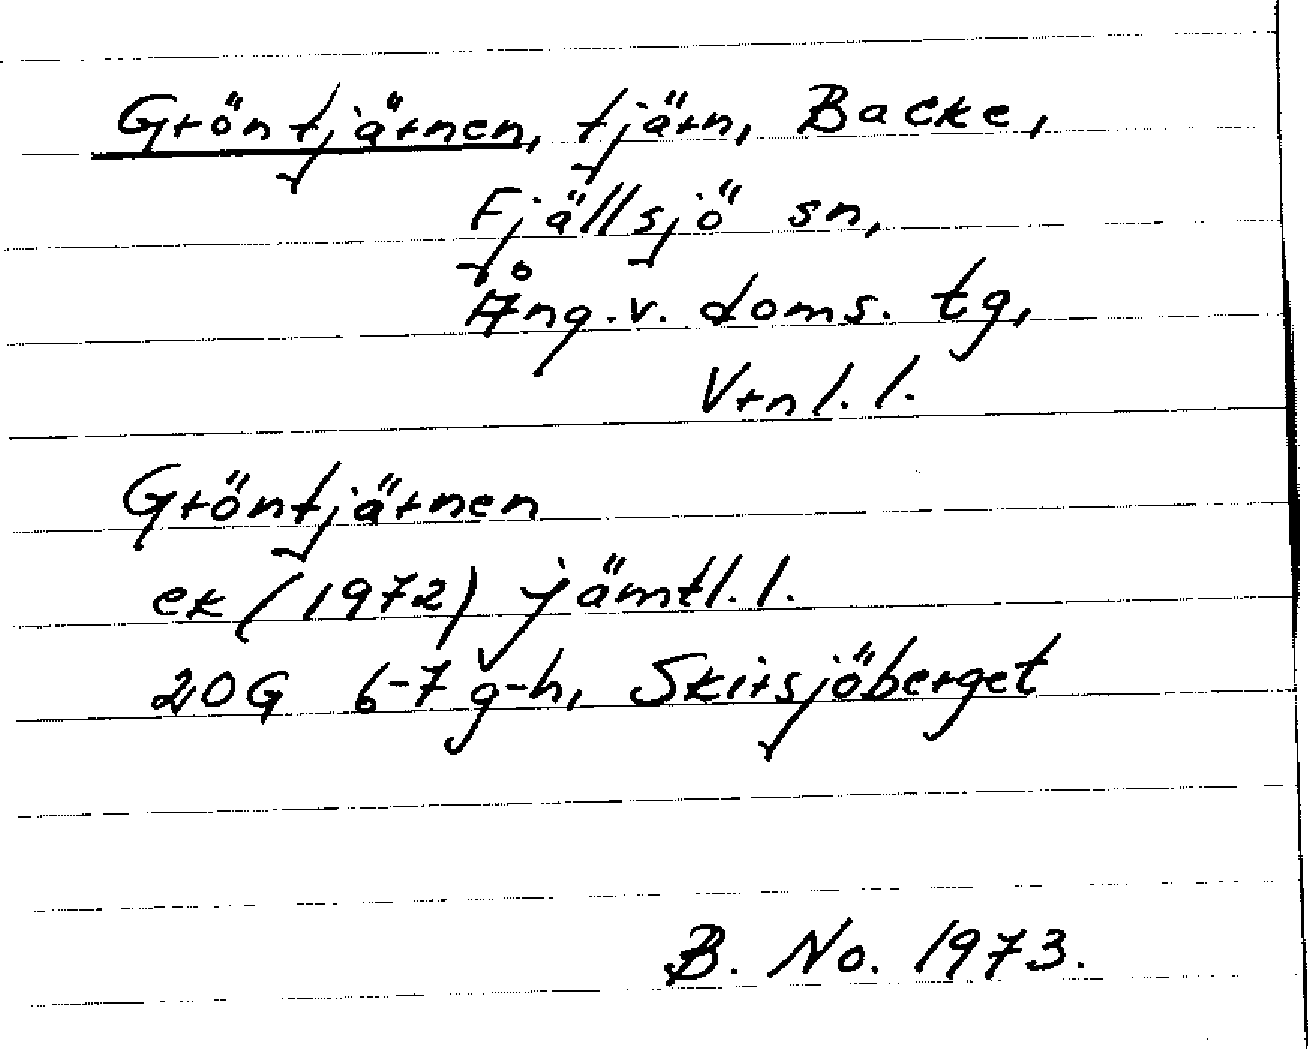 Gröntjärnen, tjärn, Backe,
Fjällsjö sn,
Ång.v. doms. tg,
Vrnl. l.
Gröntjärnen
ek (1972) jämtl. l.
20G 6-7 g-h, Skirsjöberget
B. No. 1973.